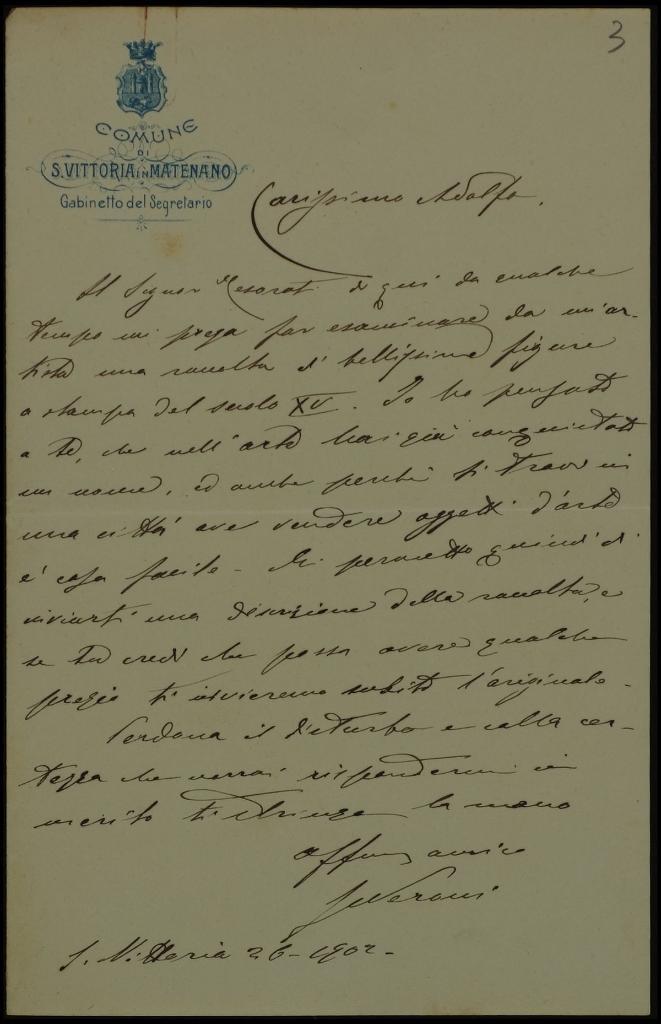 3
COMUNE
DI
S. VITTORIA IN MATENANO
Gabinetto del Segretario
Carissimo Adolfo,
Il Signor di qui da qualche
tempo mi prega far esaminare da un'ar-
tista una raccolta di bellissime figure
a stampa del secolo XV. Io ho pensato
a te, che nell'arte hai già conquistato
un nome, ed anche perché ti trovi in
una città ove vendere oggetti d'arte
e' cosa facile - Mi permetto quindi di
inviarti una descrizione della raccolta, e
se tu credi che possa avere qualche
pregio ti invieremo subito l'originale -
Perdona il disturbo e colla cer-
tezza che vorrai rispondermi in
merito ti stringo la mano
affmo amico
S. Vittoria 26-1902-